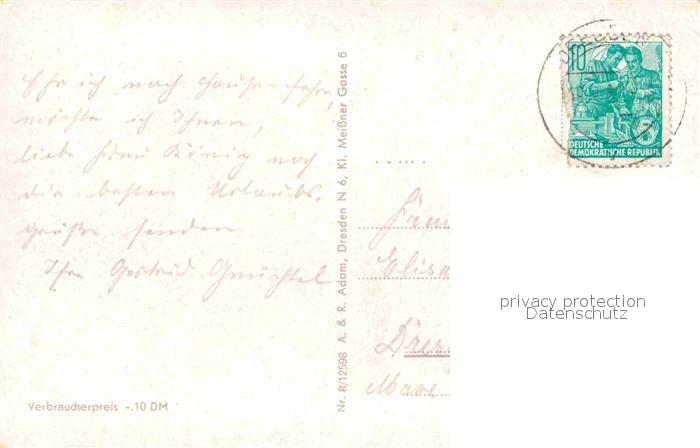 Ehe ich nach Hause fahre,
möchte ich Ihnen,
liebe Frau König noch
die besten Urlaubs-
grüße senden
Ihre Gertrud
Verbraucherpreis -.10 DM
Nr. R/12598 A. & R. Adam, Dresden N 6, Kl. Meißner Gasse 6
10
DEUTSCHE
DEMOKRATISCHE REPUBLIK
Elisa
Dres
privacy protection
Datenschutz